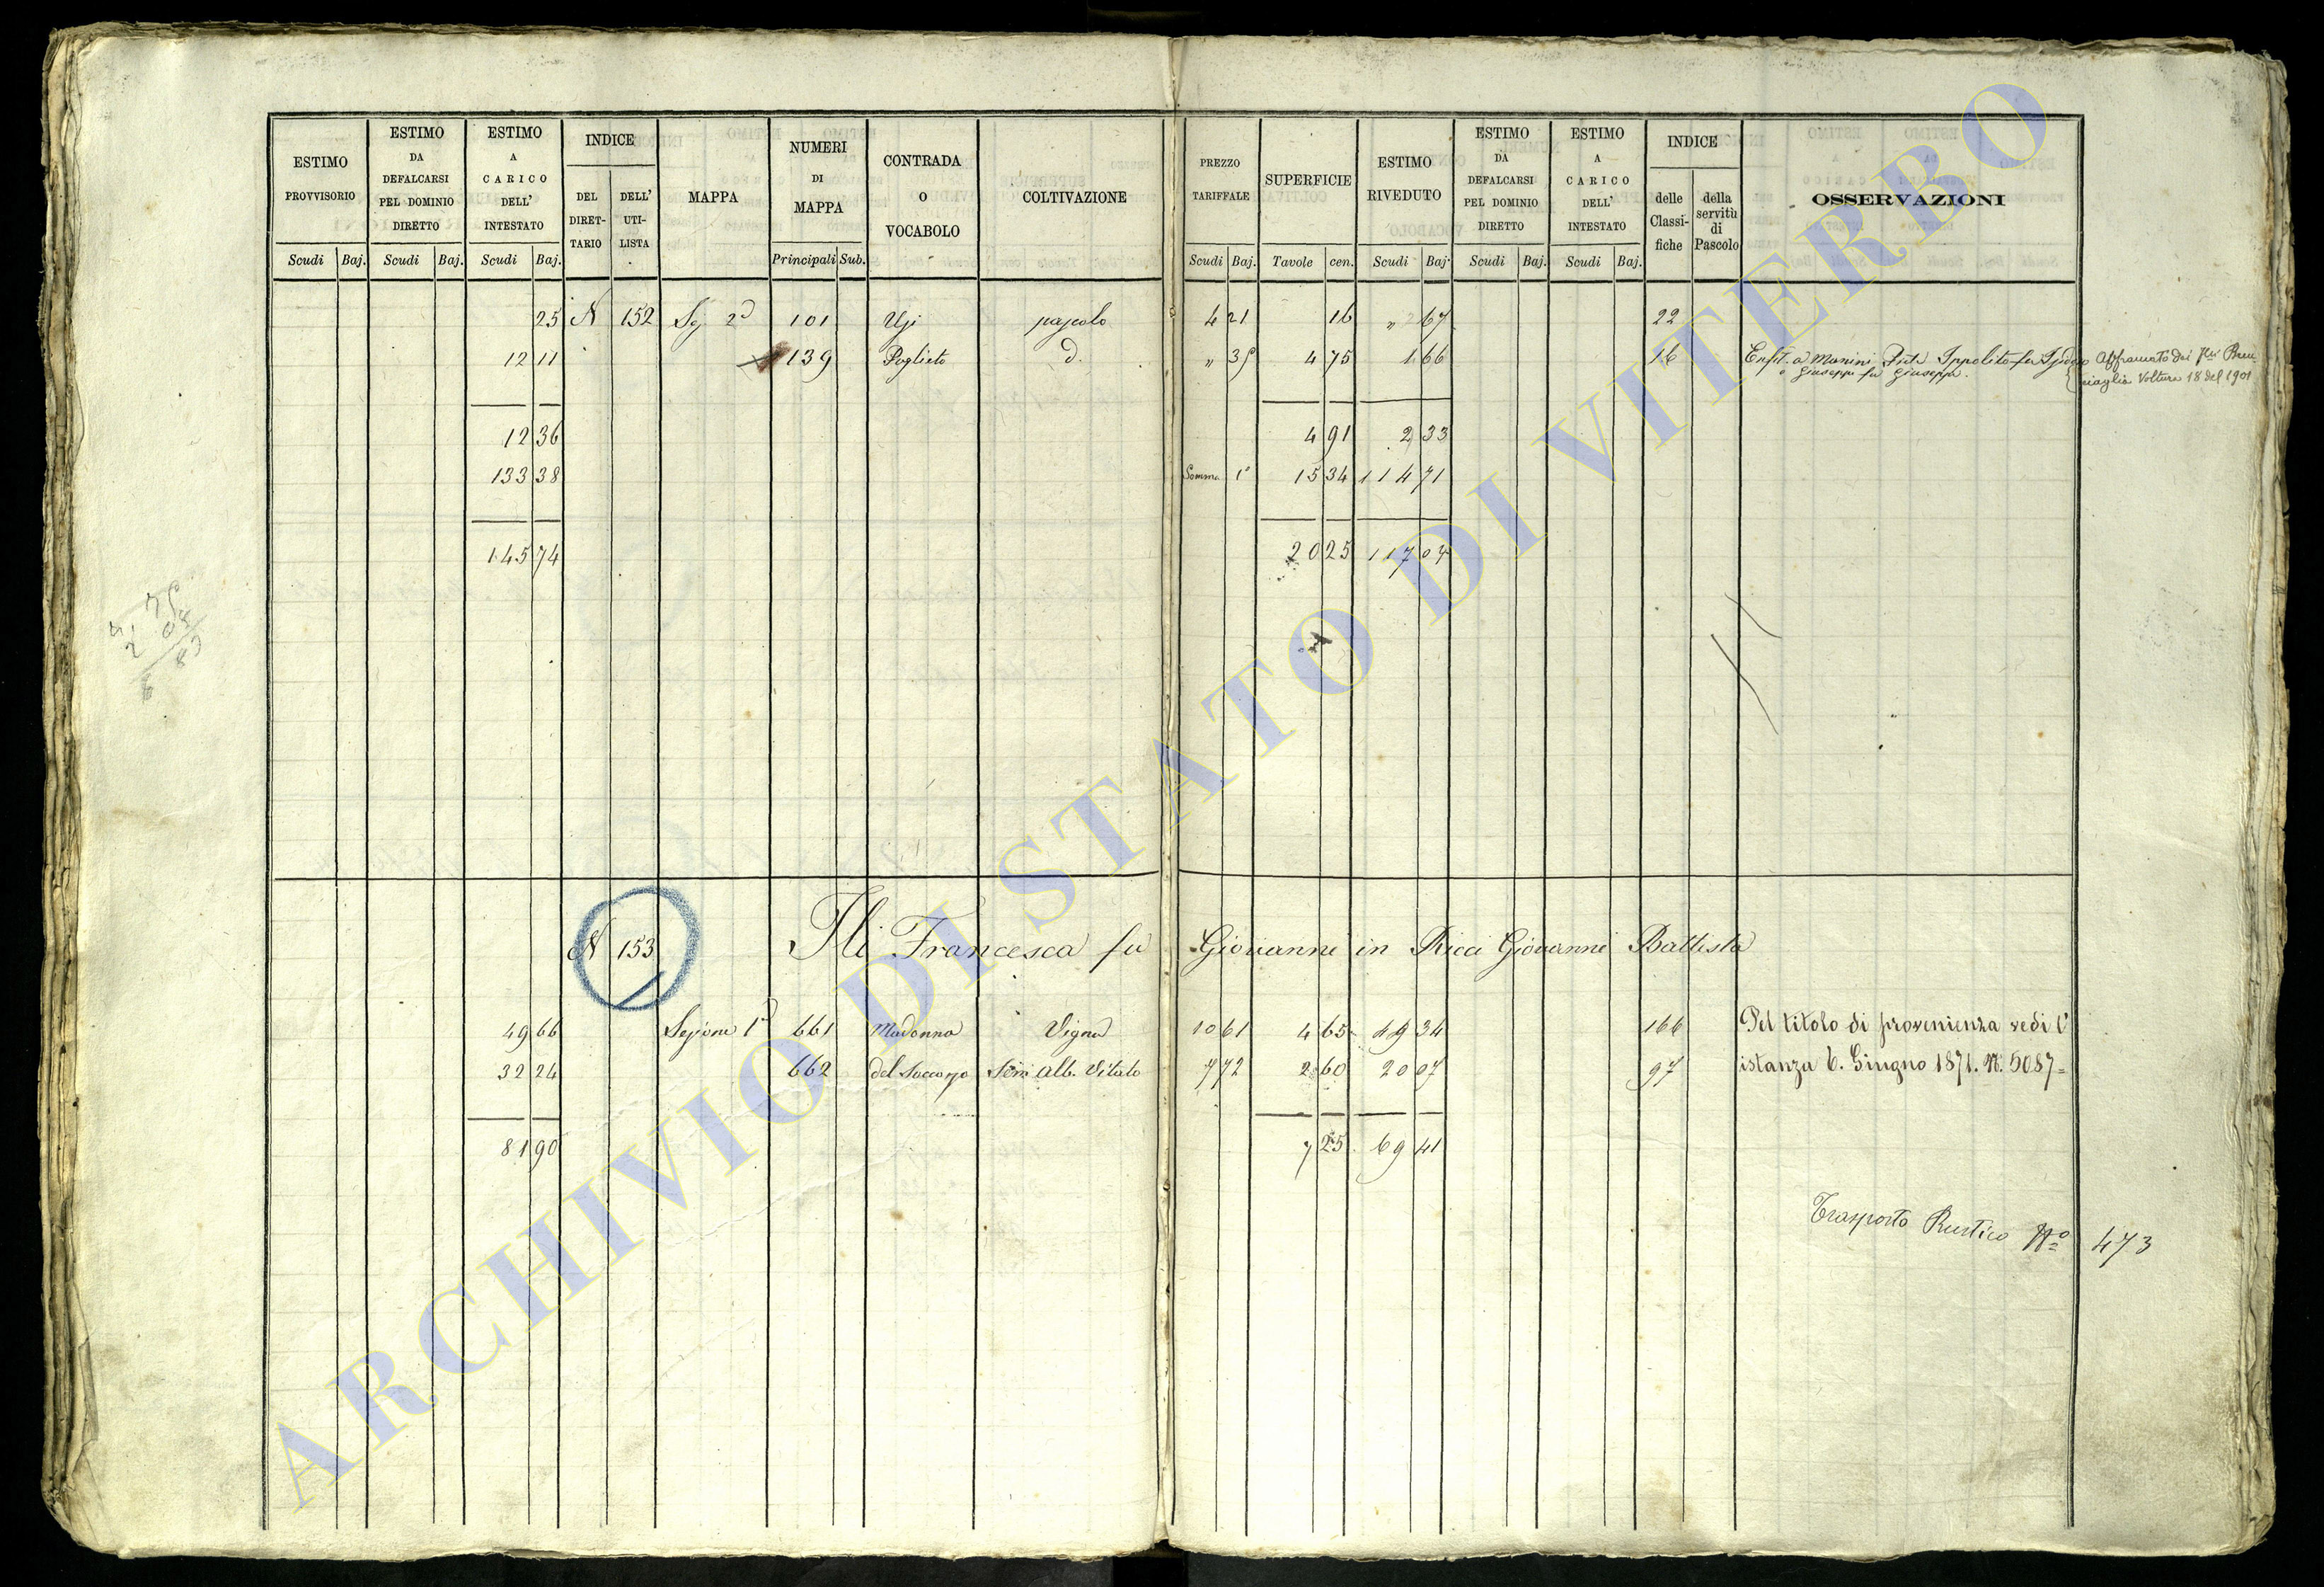 ESTIMO PROVVISORIO Scudi Baj.
ESTIMO DA DEFALCARSI PEL DOMINIO DIRETTO Scudi Baj.
ESTIMO A CARICO DELL' INTESTATO Scudi Baj.
INDICE DEL DIRET-TARIO DELL' UTI-LISTA
MAPPA
NUMERI DI MAPPA Principali Sub.
CONTRADA O VOCABOLO
COLTIVAZIONE
PREZZO TARIFFALE Scudi Baj.
SUPERFICIE Tavole cen.
ESTIMO RIVEDUTO Scudi Baj.
ESTIMO DA DEFALCARSI PEL DOMINIO DIRETTO Scudi Baj.
ESTIMO A CARICO DELL' INTESTATO Scudi Baj.
INDICE delle Classi-fiche della servitù di Pascolo
OSSERVAZIONI
25 N 152 Sez 2ª 101 pascolo 4 21 16 " 67 22
12 11 139 Poglieto d. " 35 4 75 1 66 16 Enfit. a Manini Ippolito fu
e Giuseppe fu Giuseppe. Affrancato dai
Voltura 18 del 1901
12 36 4 91 2 33
133 38 Somma 1ª 15 34 114 71
145 74 20 25 117 04
N 153 Ili Francesca fu Giovanni in Ricci Giovanni Battista
49 66 Sezione 1ª 661 Madonna Vigna 10 61 4 65 49 34 166 Pel titolo di provenienza vedi l'
32 24 662 del Soccorso Sem Alb. Vitato 7 72 2 60 20 07 97 istanza 6. Giugno 1871. N. 5087=
81 90 7 25 69 41
Trasporto Rustico Nº 473
ARCHIVIO DI STATO DI VITERBO